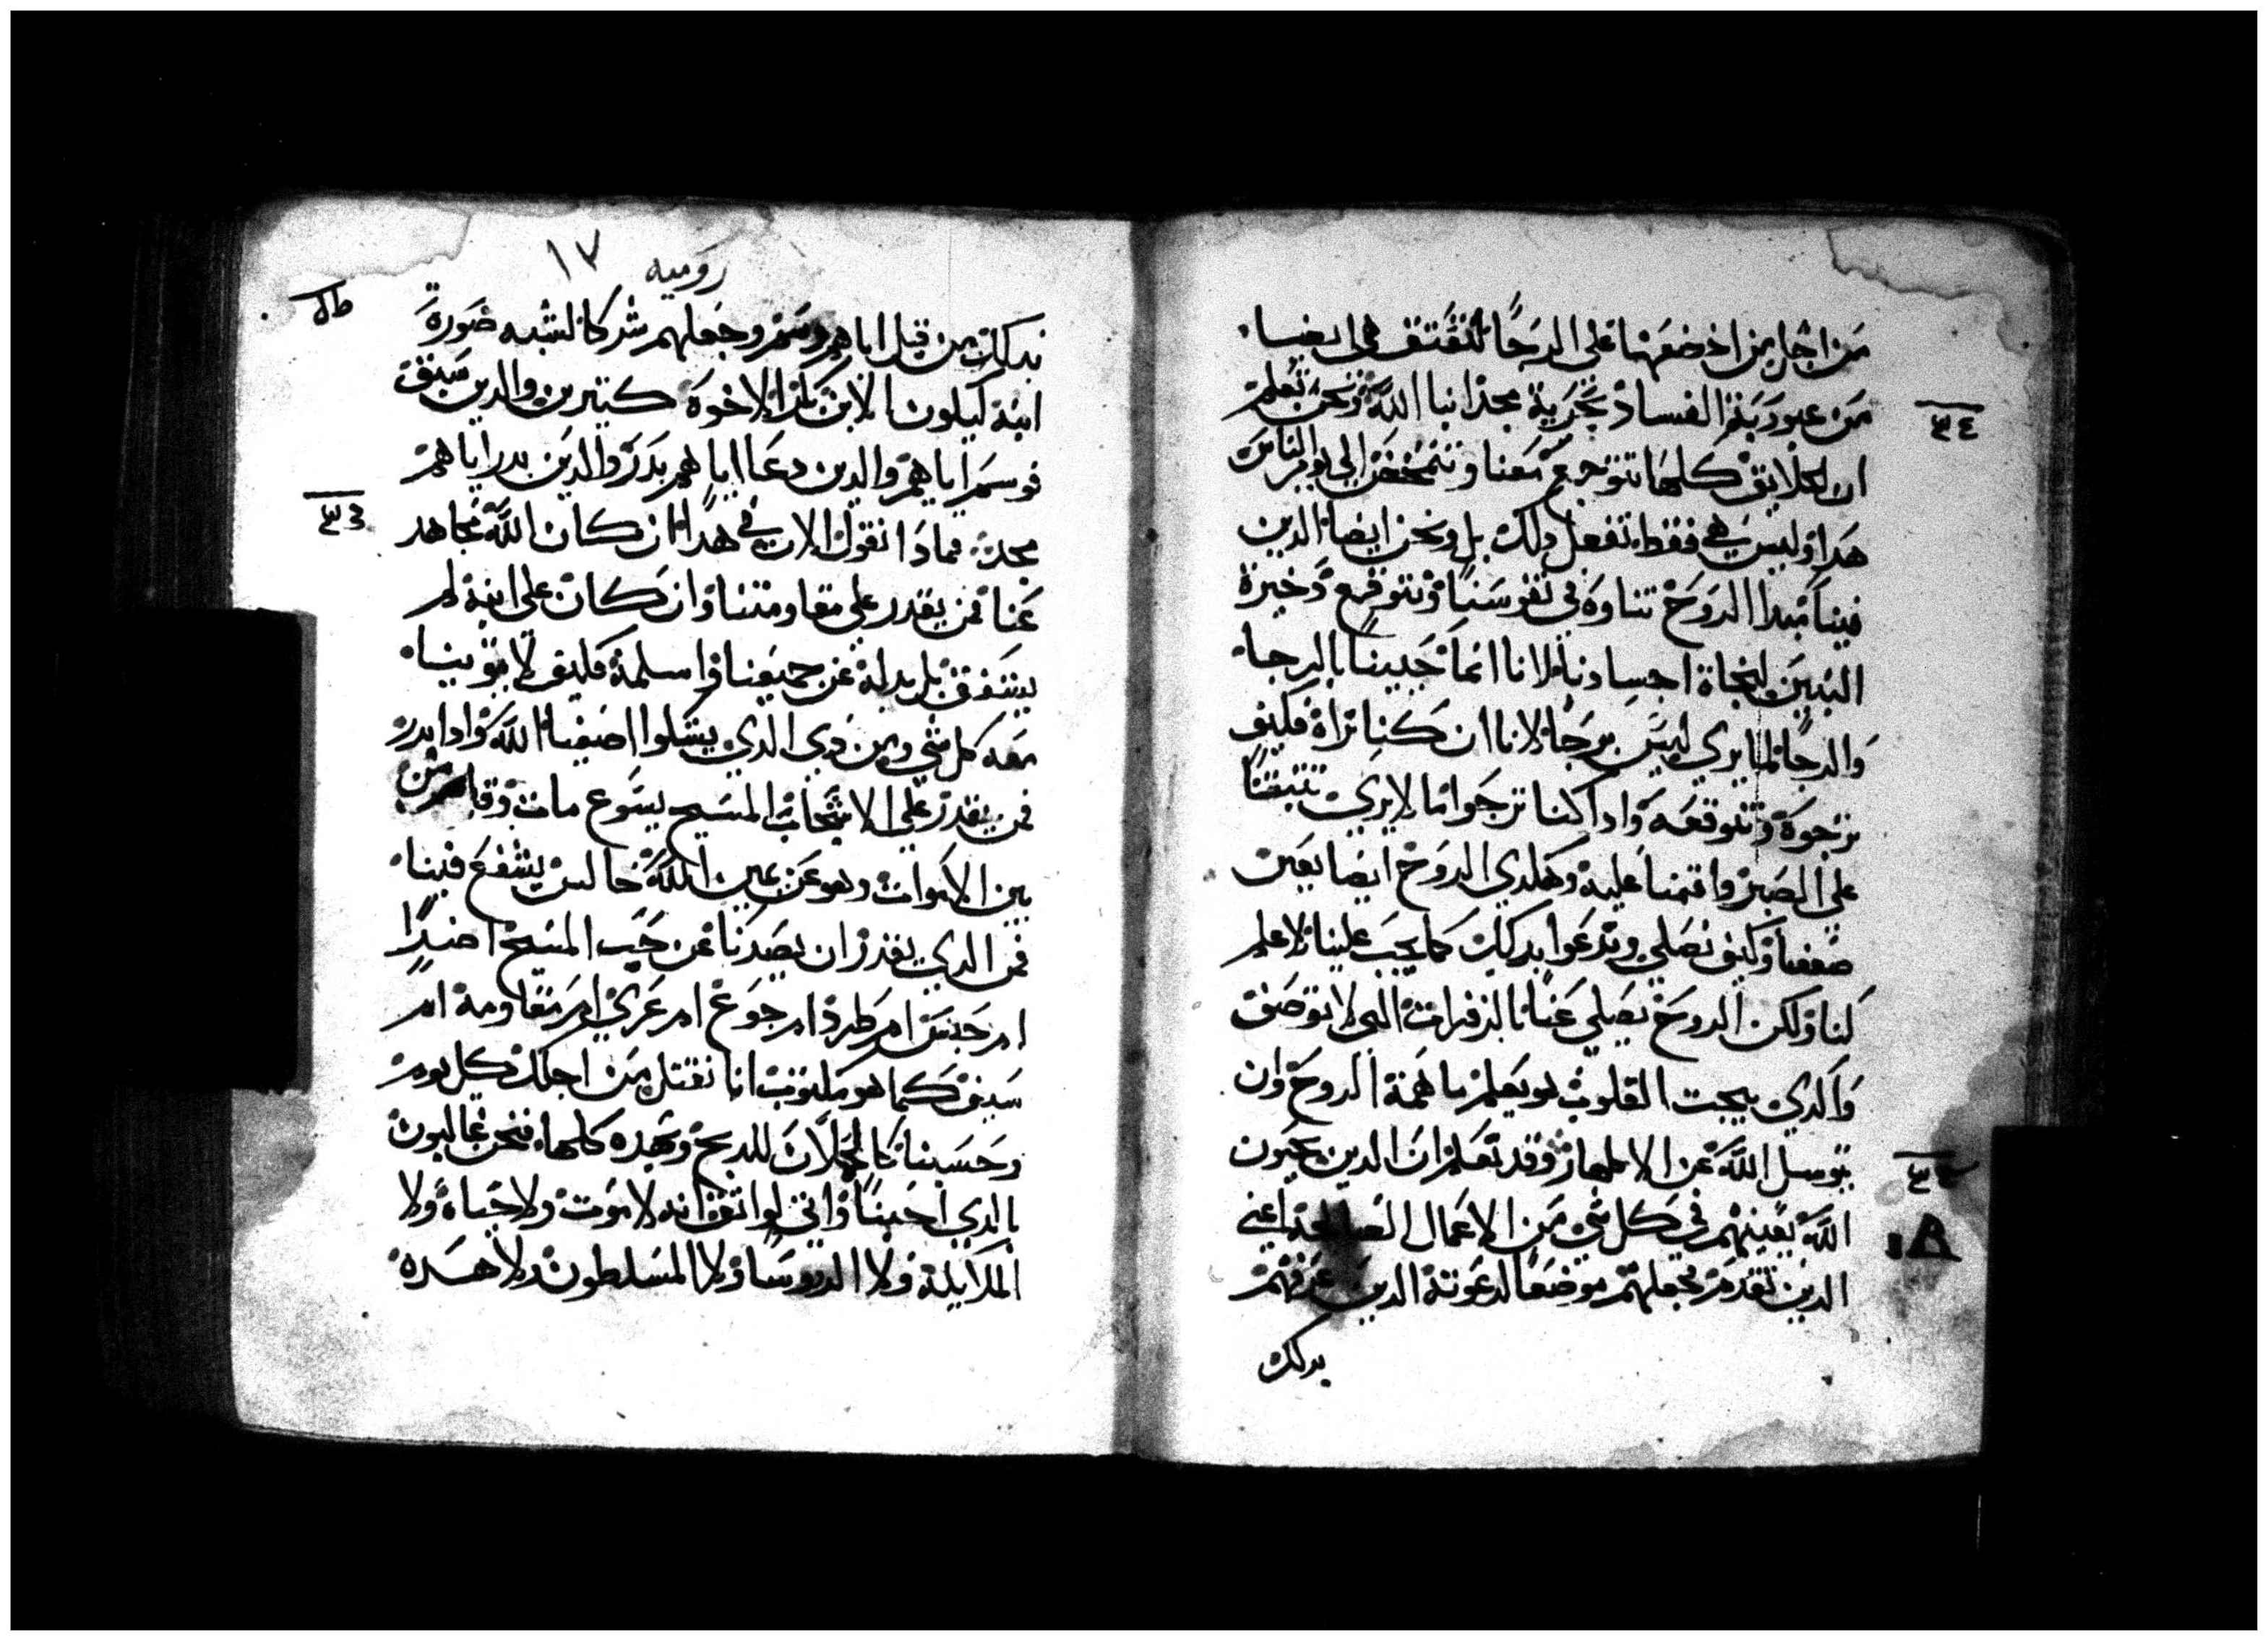 من اجل من اخضعها على الرجا لتقتق هي ايضا
من عبودية الفساد بحرية مجد ابنا الله ونحن نعلم
ان الخلايق كلها تتوجع معنا وتتمخض الى يوم الناس
هدا وليس هي فقط تفعل دلك بل ونحن ايضا الدين
فينا مبدا الروح نتاوه في نفوسنا ونتوقع دخيرة
البنين لنجاة اجسادنا لانا انما حيينا بالرجا
والرجا لما يري ليس برجا لانا ان كنا نراه فكيف
نرجوه ونتوقعه وادا كنا نرجوا ما لا يري تتبتنا
على الصبر واقمنا عليه وهكدي الروح ايضا يعين
ضعفنا وكيف نصلي وندعوا بدلك كما يجب علينا لا علم
لنا ولكن الروح يصلي عنا بالزفرات التي لا توصف
والدي يبحت القلوب هو يعلم ما همة الروح وان
يتوسل الله عن الاطهار وقد نعلم ان الدين يحبون
الله يعينهم في كل شي من الاعمال الصالحة اعني
الدين تقدم فجعلهم موضعا لدعوته الدين عرفهم
بدلك
٣٤
روميه ١٧
بدلك من قبل اياهم وسم وجعلهم شركا لشبه صورة
ابنه ليكون الابن بكر الاخوة كتيرين والدين سبق
فوسم اياهم والدين دعا اياهم برر والدين برر اياهم
مجد فمادا نقول الان في هدا ان كان الله يجاهد
عنا فمن يقدر على مقاومتنا وان كان على ابنه لم
يشفق بل بدله عن جميعنا واسلمه فكيف لا يوتينا
معه كل شي ومن دي الدي يشكوا اصفيا الله وادا برر
فمن يقدر على الاشجاب المسيح يسوع مات وقام من
بين الاموات وهو عن يمين الله جالس يشفع فينا
فمن الدي يقدر ان يصدنا عن حب المسيح اضرا
ام حبس ام طرد ام جوع ام عري ام مقاومة ام
سيف كما هو مكتوب انا نقتل من اجلك كل يوم
وحسبنا كالحملان للدبح وبهده كلها فنحن غالبون
بالدي احبنا واني لواتق انه لا موت ولا حياة ولا
الملايكة ولا الروسا ولا المسلطون ولا هده